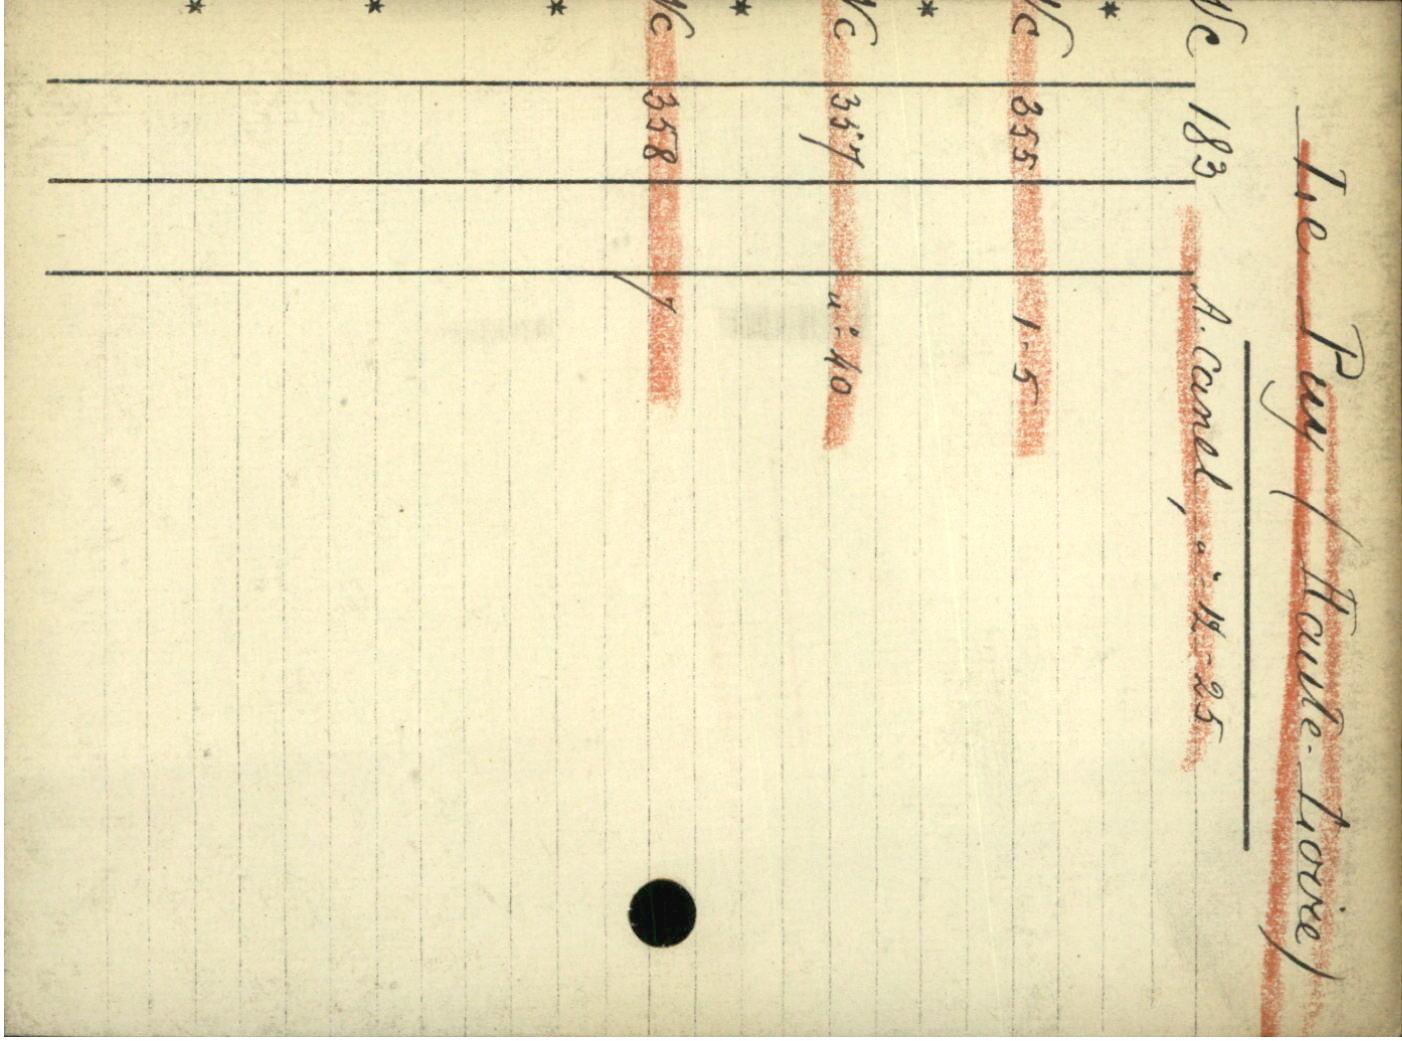 Le Puy (Haute-Loire)
Vc 183 A. Canel, n° 12-25
*
Vc 355 1-5
*
Vc 357 n° 40
*
Vc 358 7
*
*
*